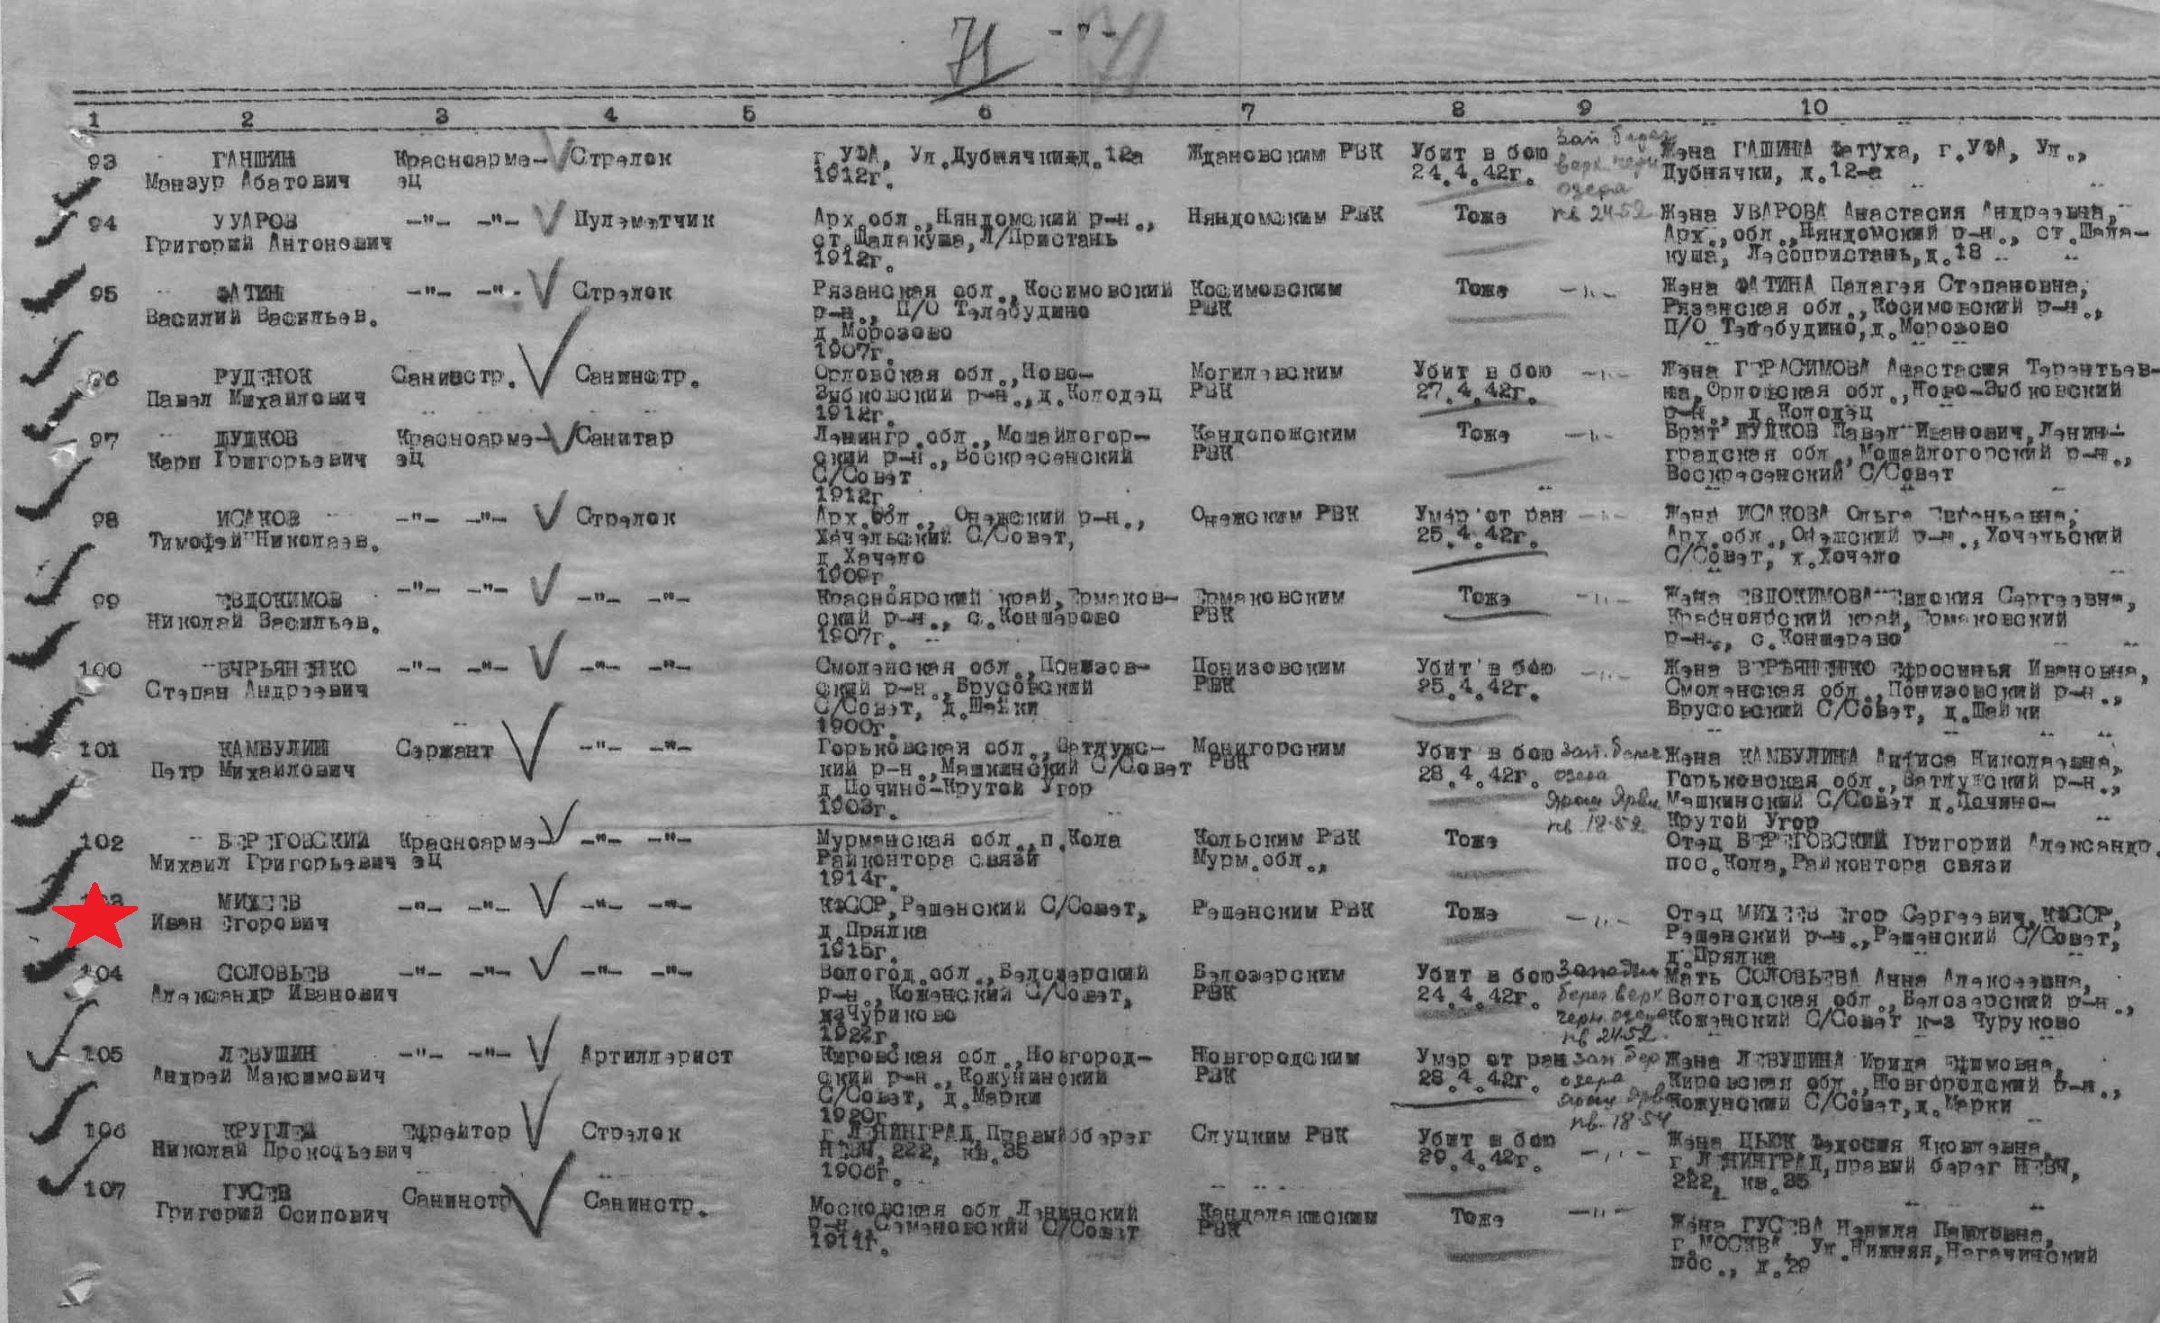 71 - 7 - 71
1 2 3 4 5 6 7 8 9 10
93 ГАНШИН Красноарме- Стрелок г.УФА, Ул.Дубнячки д.12а Ждановским РВК Убит в бою зап берег Жена ГАШИНА Фатуха, г.УФА, Ул.,
Манзур Абатович эц 1912г. 24.4.42г. верх. черн Дубнячки, д.12-а
озера
94 УУАРОВ -"- -"- Пулеметчик Арх.обл.,Няндомский р-н., Няндомским РВК Тоже кв 24-52 Жена УВАРОВА Анастасия Андреевна,
Григорий Антонович ст.Шалакуша,Л/Пристань Арх.,обл.,Няндомский р-н., ст.Шала-
1912г. куша, Лесопристань,д.18
95 ФАТИН -"- -"- Стрелок Рязанская обл.,Косимовский Косимовским Тоже -"- Жена ФАТИНА Палагея Степановна,
Василий Васильев. р-н., П/О Телебудино РВК Рязанская обл.,Косимовский р-н.,
д.Морозово П/О Телебудино,д.Морозово
1907г.
96 РУДЕНОК Санинстр. Санинстр. Орловская обл.,Ново- Могилевским Убит в бою -"- Жена ГЕРАСИМОВА Анастасия Терентьев-
Павел Михайлович Зыбковский р-н.,д.Колодец РВК 27.4.42г. на,Орловская обл.,Ново-Зыбковский
1912г. р-н., д.Колодец
97 ДУДКОВ Красноарме- Санитар Ленингр.обл.,Мошайлогор- Кандопожским Тоже -"- Брат ДУДКОВ Павел Иванович,Ленин-
Карп Григорьевич эц ский р-н.,Воскресенский РВК градская обл.,Мошайлогорский р-н.,
С/Совет Воскресенский С/Совет
1912г.
98 ИСАКОВ -"- -"- Стрелок Арх.обл., Онежский р-н., Онежским РВК Умер от ран -"- Жена ИСАКОВА Ольга Евгеньевна,
Тимофей Николаев. Хачельский С/Совет, 25.4.42г. Арх.обл.,Онежский р-н.,Хочельский
д.Хачело С/Совет, д.Хочело
1909г.
99 ЕВДОКИМОВ -"- -"- -"- -"- Красноярский край,Ермаков- Ермаковским Тоже -"- Жена ЕВДОКИМОВА Евдокия Сергеевна,
Николай Васильев. ский р-н., с.Коншарово РВК Красноярский край,Ермаковский
1907г. р-н., с.Коншарево
100 ВЕРЬЯНЕНКО -"- -"- -"- -"- Смоленская обл.,Понизов- Понизовским Убит в бою -"- Жена ВЕРЬЯНЕНКО Ефросинья Ивановна,
Степан Андреевич ский р-н.,Брусовский РВК 25.4.42г. Смоленская обл.,Понизовский р-н.,
С/Совет, д.Шайки Брусовский С/Совет, д.Шайки
1900г.
101 КАМБУЛИН Сержант -"- -"- Горьковская обл.,Ватлужс- Мончгорским Убит в бою зап. берег Жена КАМБУЛИНА Анфиса Николаевна,
Петр Михайлович кий р-н.,Машкинский С/Совет РВК 28.4.42г. озера Горьковская обл.,Ватлужский р-н.,
д.Почино-Крутой Угор Ярош Ярви Машкинский С/Совет д.Почино-
1903г. кв. 18-52 Крутой Угор
102 БЕРЕГОВСКИЙ Красноарме- -"- -"- Мурманская обл.,п.Кола Кольским РВК Тоже Отец БЕРЕГОВСКИЙ Григорий Александр.
Михаил Григорьевич эц Райконтора связи Мурм.обл., пос.Кола,Райконтора связи
1914г.
МИХЕЕВ -"- -"- -"- -"- КФССР,Решенский С/Совет, Решенским РВК Тоже -"- Отец МИХЕЕВ Егор Сергеевич,КФССР,
Иван Егорович д.Прялка Решенский р-н.,Решенский С/Совет,
1915г. д.Прялка
104 СОЛОВЬЕВ -"- -"- -"- -"- Вологод.обл.,Белозерский Белозерским Убит в бою западн Мать СОЛОВЬЕВА Анна Алексеевна,
Александр Иванович р-н.,Коженский С/Совет, РВК 24.4.42г. берег верх Вологодская обл.,Белозерский р-н.,
Чуриково черн. озера Коженский С/Совет к-з Чуруково
1922г. кв 2452
105 ЛЕВУШИН -"- -"- Артиллерист Кировская обл.,Новгород- Новгородским Умер от ран зап бер Жена ЛЕВУШИНА Ирида Ефимовна,
Андрей Максимович ский р-н.,Кожунинский РВК 28.4.42г. озера Кировская обл.,Новгородский р-н.,
С/Совет, д.Марки Ярош Ярви Кожунский С/Совет,д.Марки
1920г. кв. 18-54
106 КРУГЛЕЙ Ефрейтор Стрелок г.ЛЕНИНГРАД,Правый берег Слуцким РВК Убит в бою -"- Жена ЦЬЮК Федосия Яковлевна,
Николай Прокофьевич НЕВЫ,222, кв.35 29.4.42г. г.ЛЕНИНГРАД,правый берег НЕВЫ,
1906г. 222, кв.35
107 ГУСЕВ Санинстр Санинстр. Московская обл Ленинский Кандалакшским Тоже -"- Жена ГУСЕВА Ненила Павловна,
Григорий Осипович р-н.,Семеновский С/Совет РВК г.МОСКВА, Ул.Нижняя,Нагачинский
1911г. пос., д.29